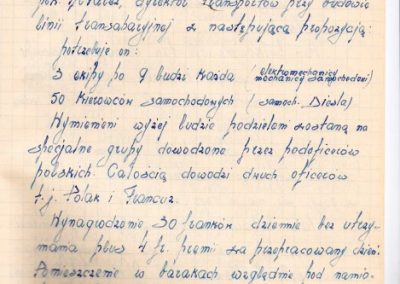 płk. dyrektor transportów przy budowie
linii transsaharyjnej z następującą propozycją:
potrzebuje on:
3 ekipy po 9 ludzi każda (elektromechanicy
mechanicy samochodowi)
50 kierowców samochodowych (samoch. Diesla)
Wymienieni wyżej ludzie podzieleni zostaną na
specjalne grupy dowodzone przez podoficerów
polskich. Całością dowodzi dwuch oficerów
t.j. Polak i Francuz.
Wynagrodzenie 30 franków dziennie bez utrzy-
mania plus 4 fr. premii za przepracowany dzień.
Pomieszczenie w barakach względnie pod namio-